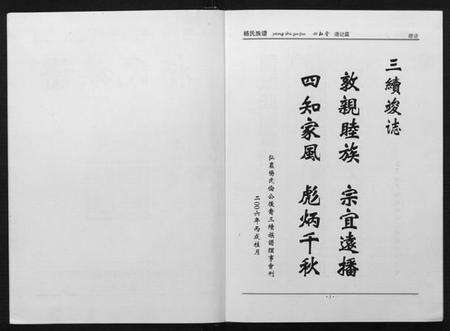 杨氏族谱 yang shi zu pu 四知堂 谱记篇
三續竣誌
敦親睦族 宗宜遠播
四知家風 彪炳千秋
弘農楊氏倫公後裔三續族譜理事會刊
二〇〇六年丙戌桂月
·1·